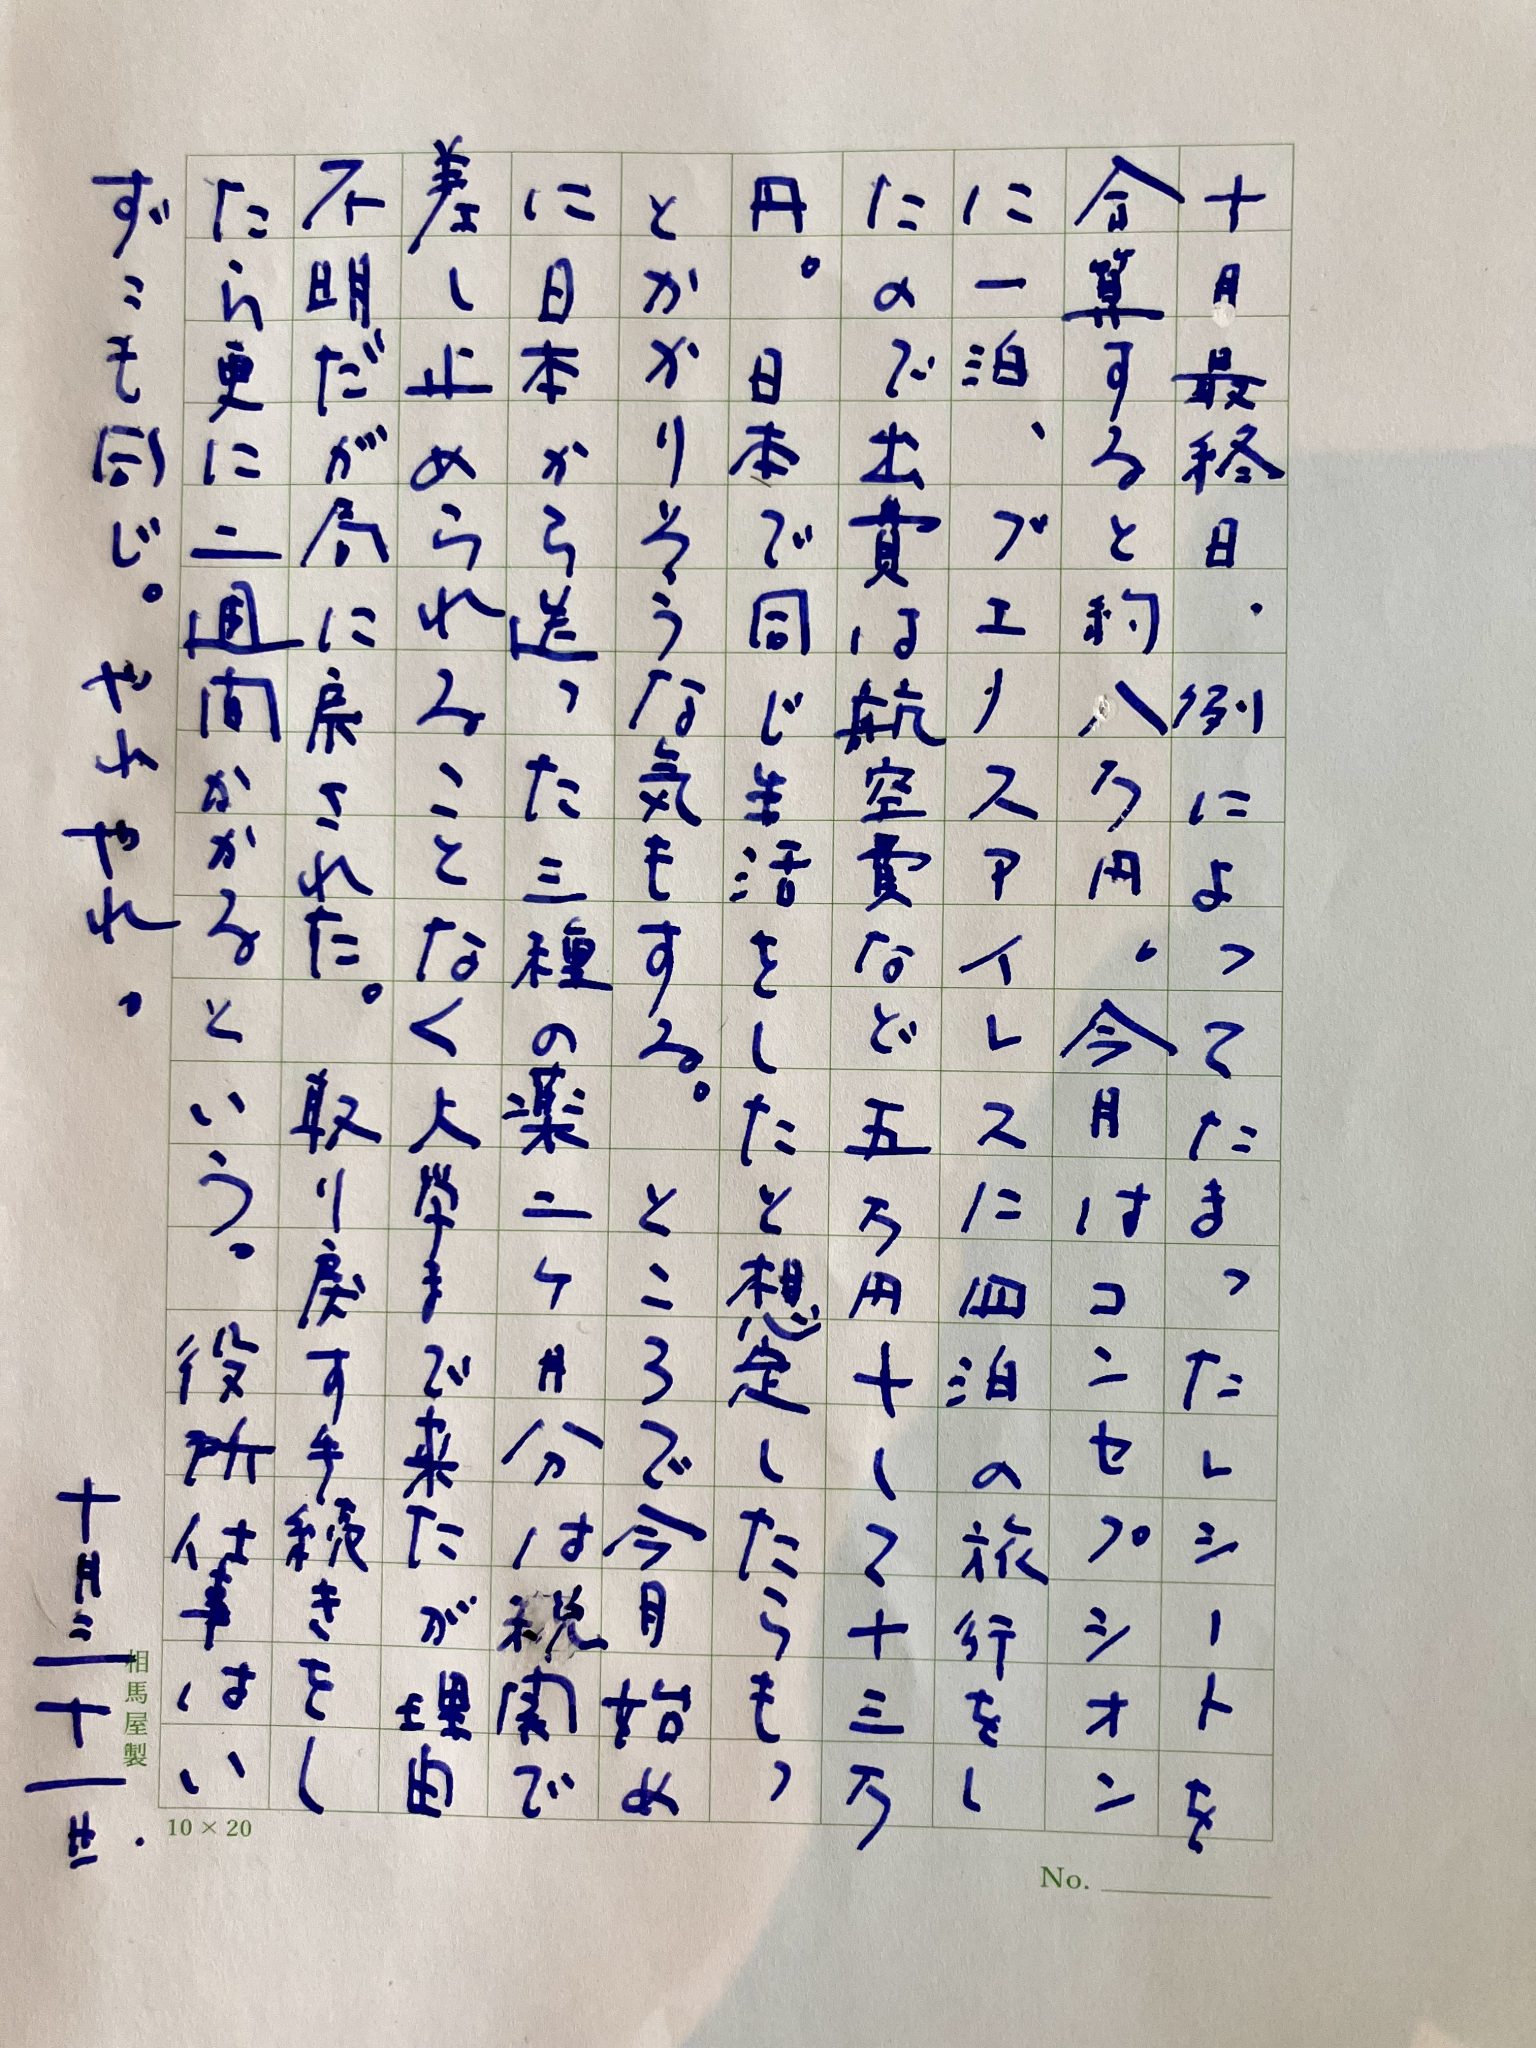 十月最終日。例によってたまったレシートを
合算すると約八万円。今月はコンセプシオン
に一泊、ブエノスアイレスに四泊の旅行をし
たので出費は航空費など五万円十して十三万
円。日本で同じ生活をしたと想定したらもっ
とかかりそうな気もする。ところで今月始め
に日本から送った三種の薬二ケ月分は税関で
差し止められることなく大学まで来たが理由
不明だが局に戻された。取り戻す手続きをし
たら更に二週間かかるという。役所仕事はい
ずこも同じ。やれやれ。
十月三十一日.
相馬屋製
10 × 20
No.